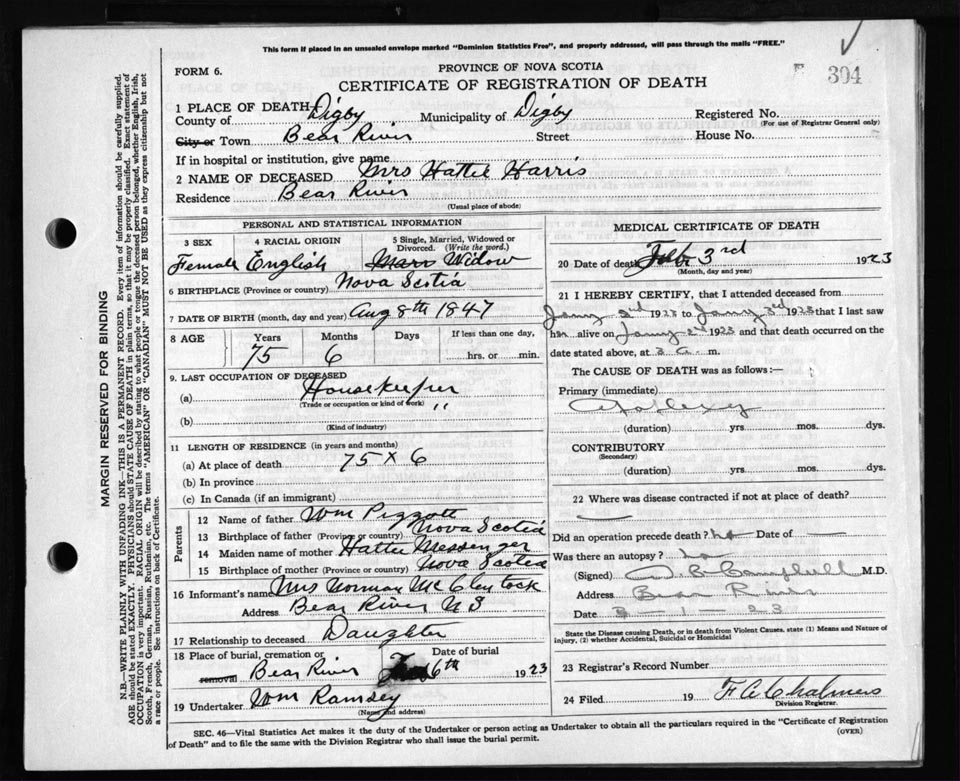 This form if placed in an unsealed envelope marked "Dominion Statistics Free", and properly addressed, will pass through the mails "FREE."
FORM 6.
PROVINCE OF NOVA SCOTIA
CERTIFICATE OF REGISTRATION OF DEATH
F 304
1 PLACE OF DEATH
County of Digby Municipality of Digby Registered No.
(For use of Registrar General only)
City or Town Bear River Street House No.
If in hospital or institution, give name
2 NAME OF DECEASED Mrs Hattie Harris
Residence Bear River
(Usual place of abode)
PERSONAL AND STATISTICAL INFORMATION
3 SEX 4 RACIAL ORIGIN 5 Single, Married, Widowed or Divorced. (Write the word.)
Female English Widow
6 BIRTHPLACE (Province or country) Nova Scotia
7 DATE OF BIRTH (month, day and year) Aug 8th 1847
8 AGE Years Months Days If less than one day,
75 6 hrs. or min.
9. LAST OCCUPATION OF DECEASED
(a) Housekeeper
(Trade or occupation or kind of work) "
(b)
(Kind of industry)
11 LENGTH OF RESIDENCE (in years and months)
(a) At place of death 75 x 6
(b) In province
(c) In Canada (if an immigrant)
Parents
12 Name of father Wm Piggott
13 Birthplace of father (Province or country) Nova Scotia
14 Maiden name of mother Hattie Messenger
15 Birthplace of mother (Province or country) Nova Scotia
16 Informant's name Mrs Norman McClentock
Address Bear River N S
17 Relationship to deceased Daughter
18 Place of burial, cremation or removal Date of burial
Bear River 6th 1923
19 Undertaker Wm Ramsey
(Name and address)
MEDICAL CERTIFICATE OF DEATH
20 Date of death Feb 3rd 1923
(Month, day and year)
21 I HEREBY CERTIFY, that I attended deceased from
Jany 2nd 1923 to Jany 3rd 1923 that I last saw
her alive on Jany 2nd 1923 and that death occurred on
date stated above, at 3 a. m.
The CAUSE OF DEATH was as follows:—
Primary (immediate)
(duration) yrs. mos. dys.
CONTRIBUTORY
(Secondary)
(duration) yrs. mos. dys.
22 Where was disease contracted if not at place of death?
Did an operation precede death? no Date of
Was there an autopsy? no
(Signed) Campbell M.D.
Address Bear River
Date 1 - 23
State the Disease causing Death, or in death from Violent Causes, state (1) Means and Nature of injury, (2) whether Accidental, Suicidal or Homicidal
23 Registrar's Record Number
24 Filed 19 F A Chalmers
Division Registrar.
SEC. 46—Vital Statistics Act makes it the duty of the Undertaker or person acting as Undertaker to obtain all the particulars required in the "Certificate of Registration
of Death" and to file the same with the Division Registrar who shall issue the burial permit.
(OVER)
MARGIN RESERVED FOR BINDING
N.B.—WRITE PLAINLY WITH UNFADING INK—THIS IS A PERMANENT RECORD. Every item of information should be carefully supplied.
AGE should be stated EXACTLY. PHYSICIANS should STATE CAUSE OF DEATH in plain terms, so that it may be properly classified. Exact statement of
OCCUPATION is very important. RACIAL ORIGIN will be described by stating to what people or tongue the deceased person belonged, whether English, Irish,
Scotch, French, German, Russian, Ruthenian, etc. The terms "AMERICAN" or "CANADIAN" MUST NOT BE USED as they express citizenship but not
a race or people. See instructions on back of Certificate.